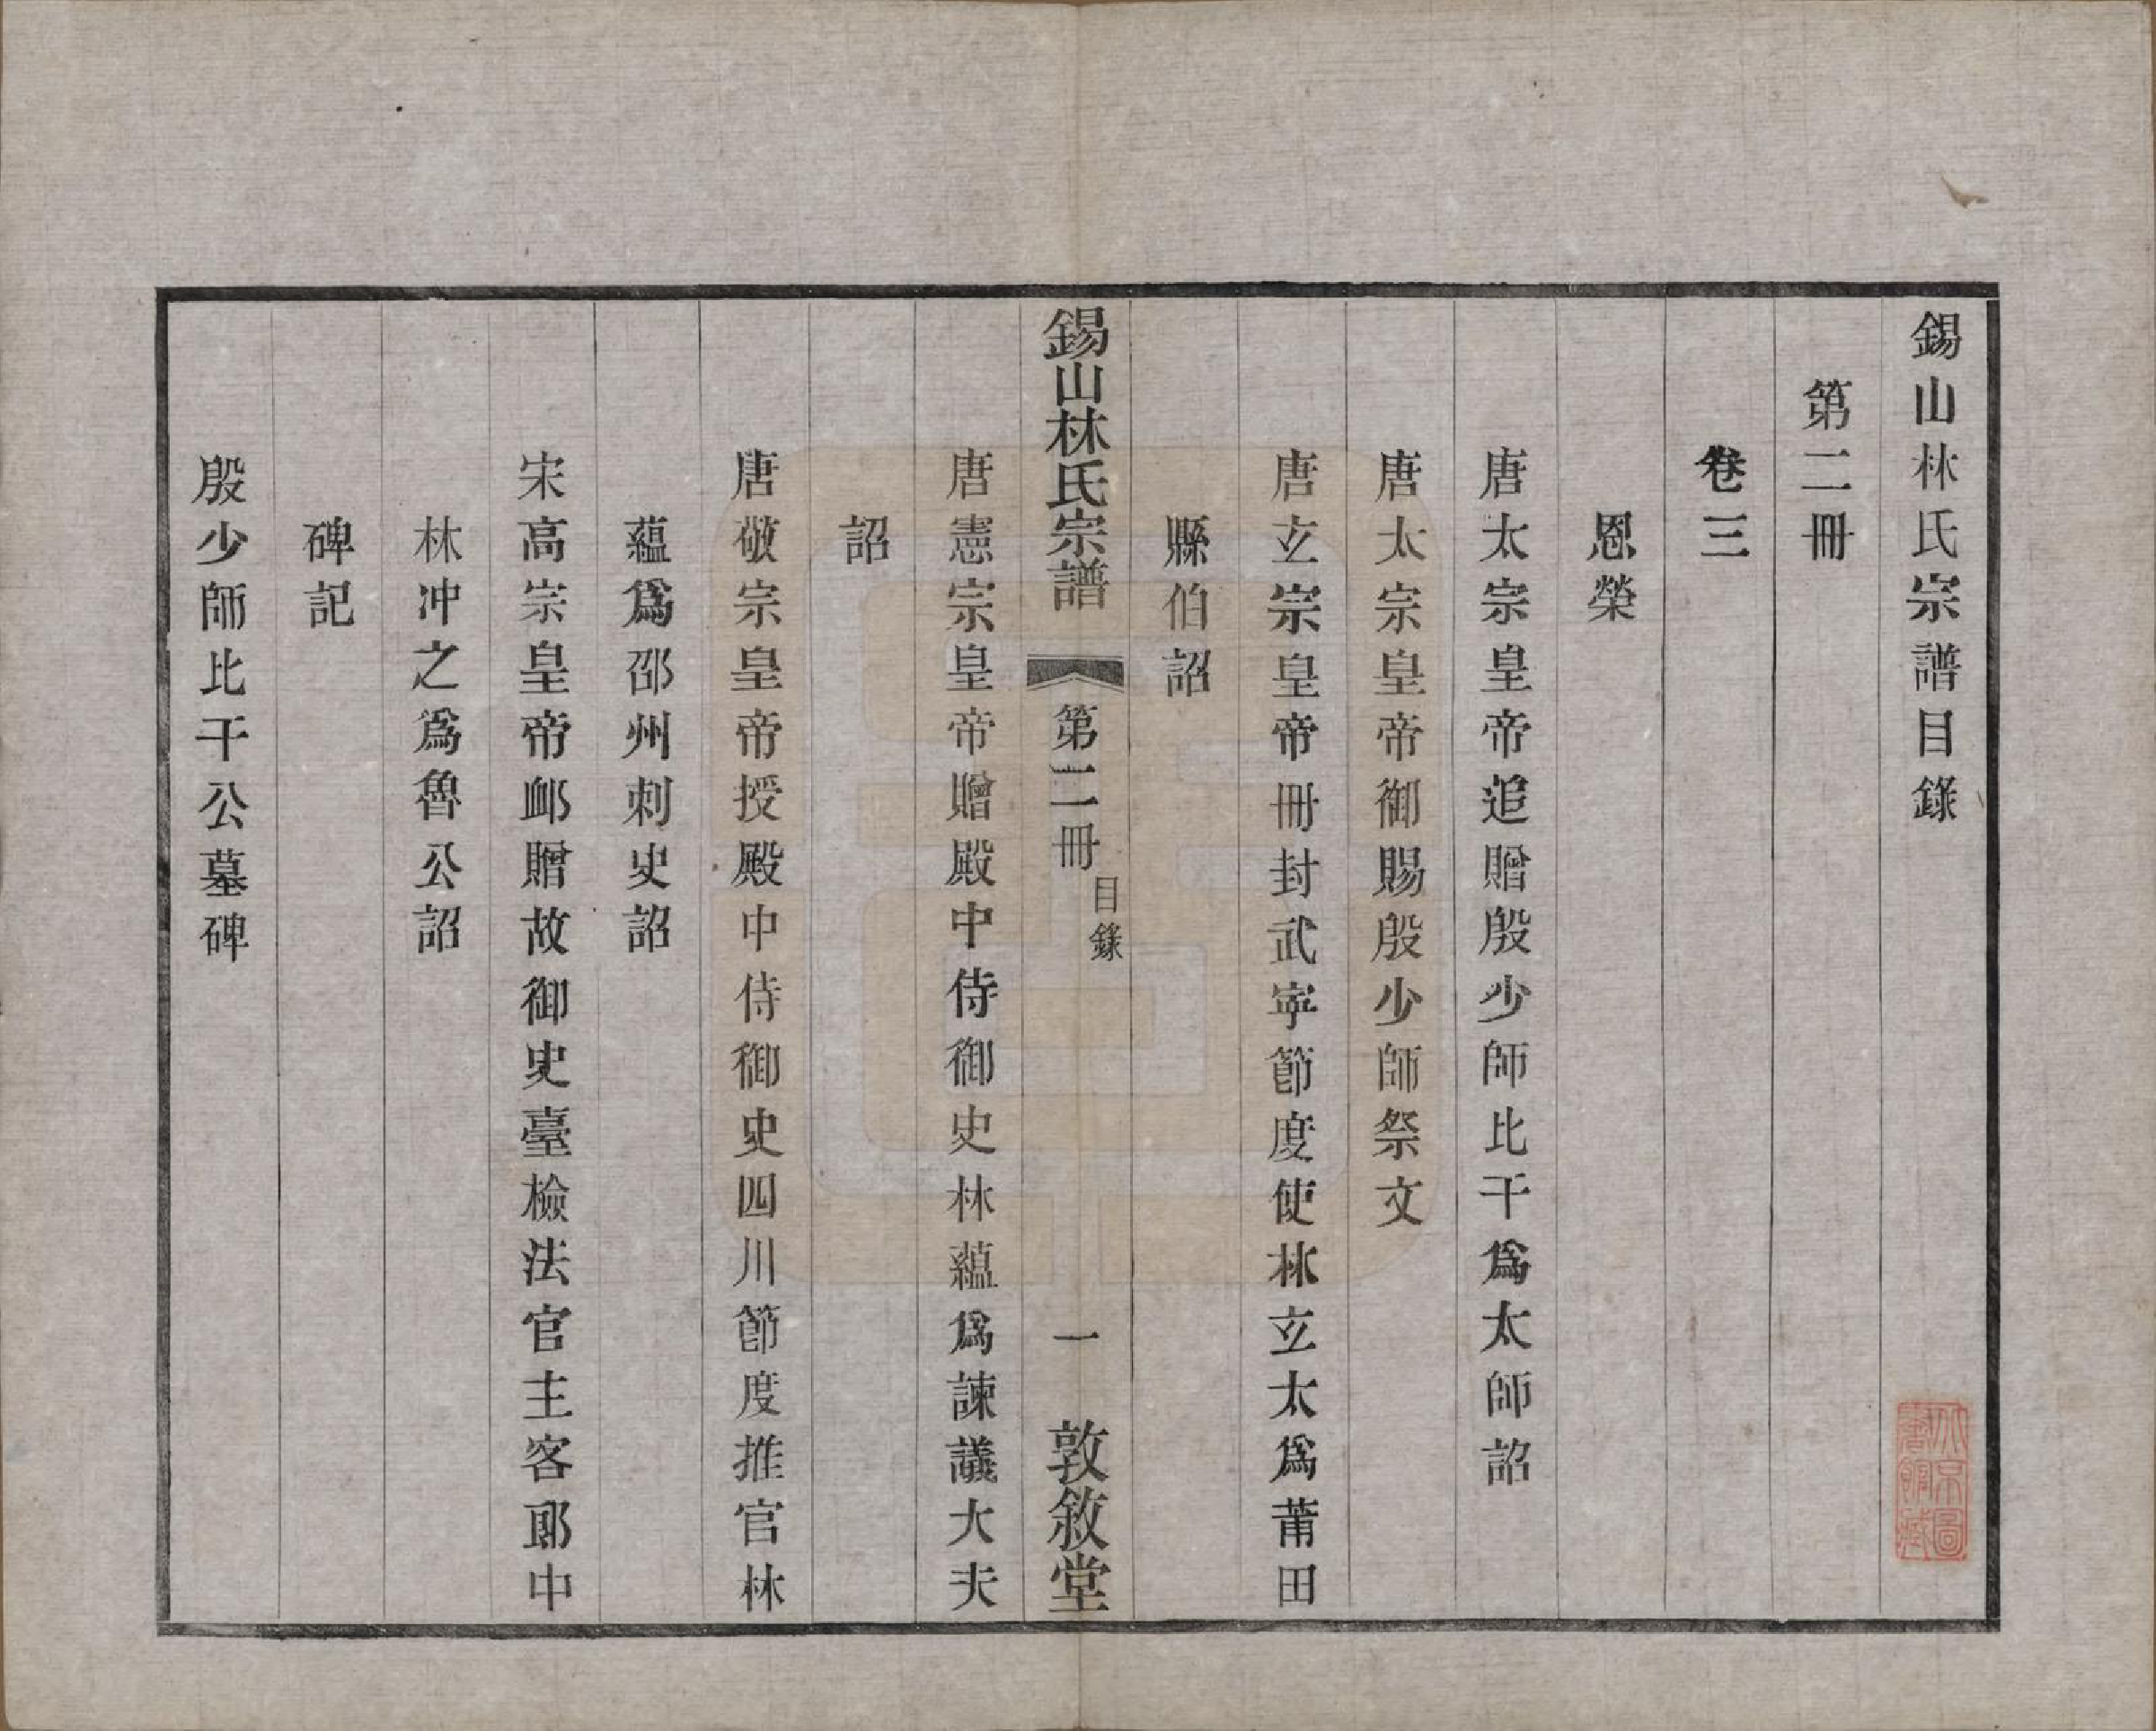 錫山林氏宗譜目錄
第二冊
卷三
恩榮
唐太宗皇帝追贈殷少師比干爲太師詔
唐太宗皇帝御賜殷少師祭文
唐玄宗皇帝冊封武寧節度使林玄太爲莆田
縣伯詔
錫山林氏宗譜 第二冊 目錄 一 敦敘堂
唐憲宗皇帝贈殿中侍御史林蘊爲諫議大夫
詔
唐敬宗皇帝授殿中侍御史四川節度推官林
蘊爲邵州刺史詔
宋高宗皇帝卹贈故御史臺檢法官主客郎中
林冲之爲魯公詔
碑記
殷少師比干公墓碑